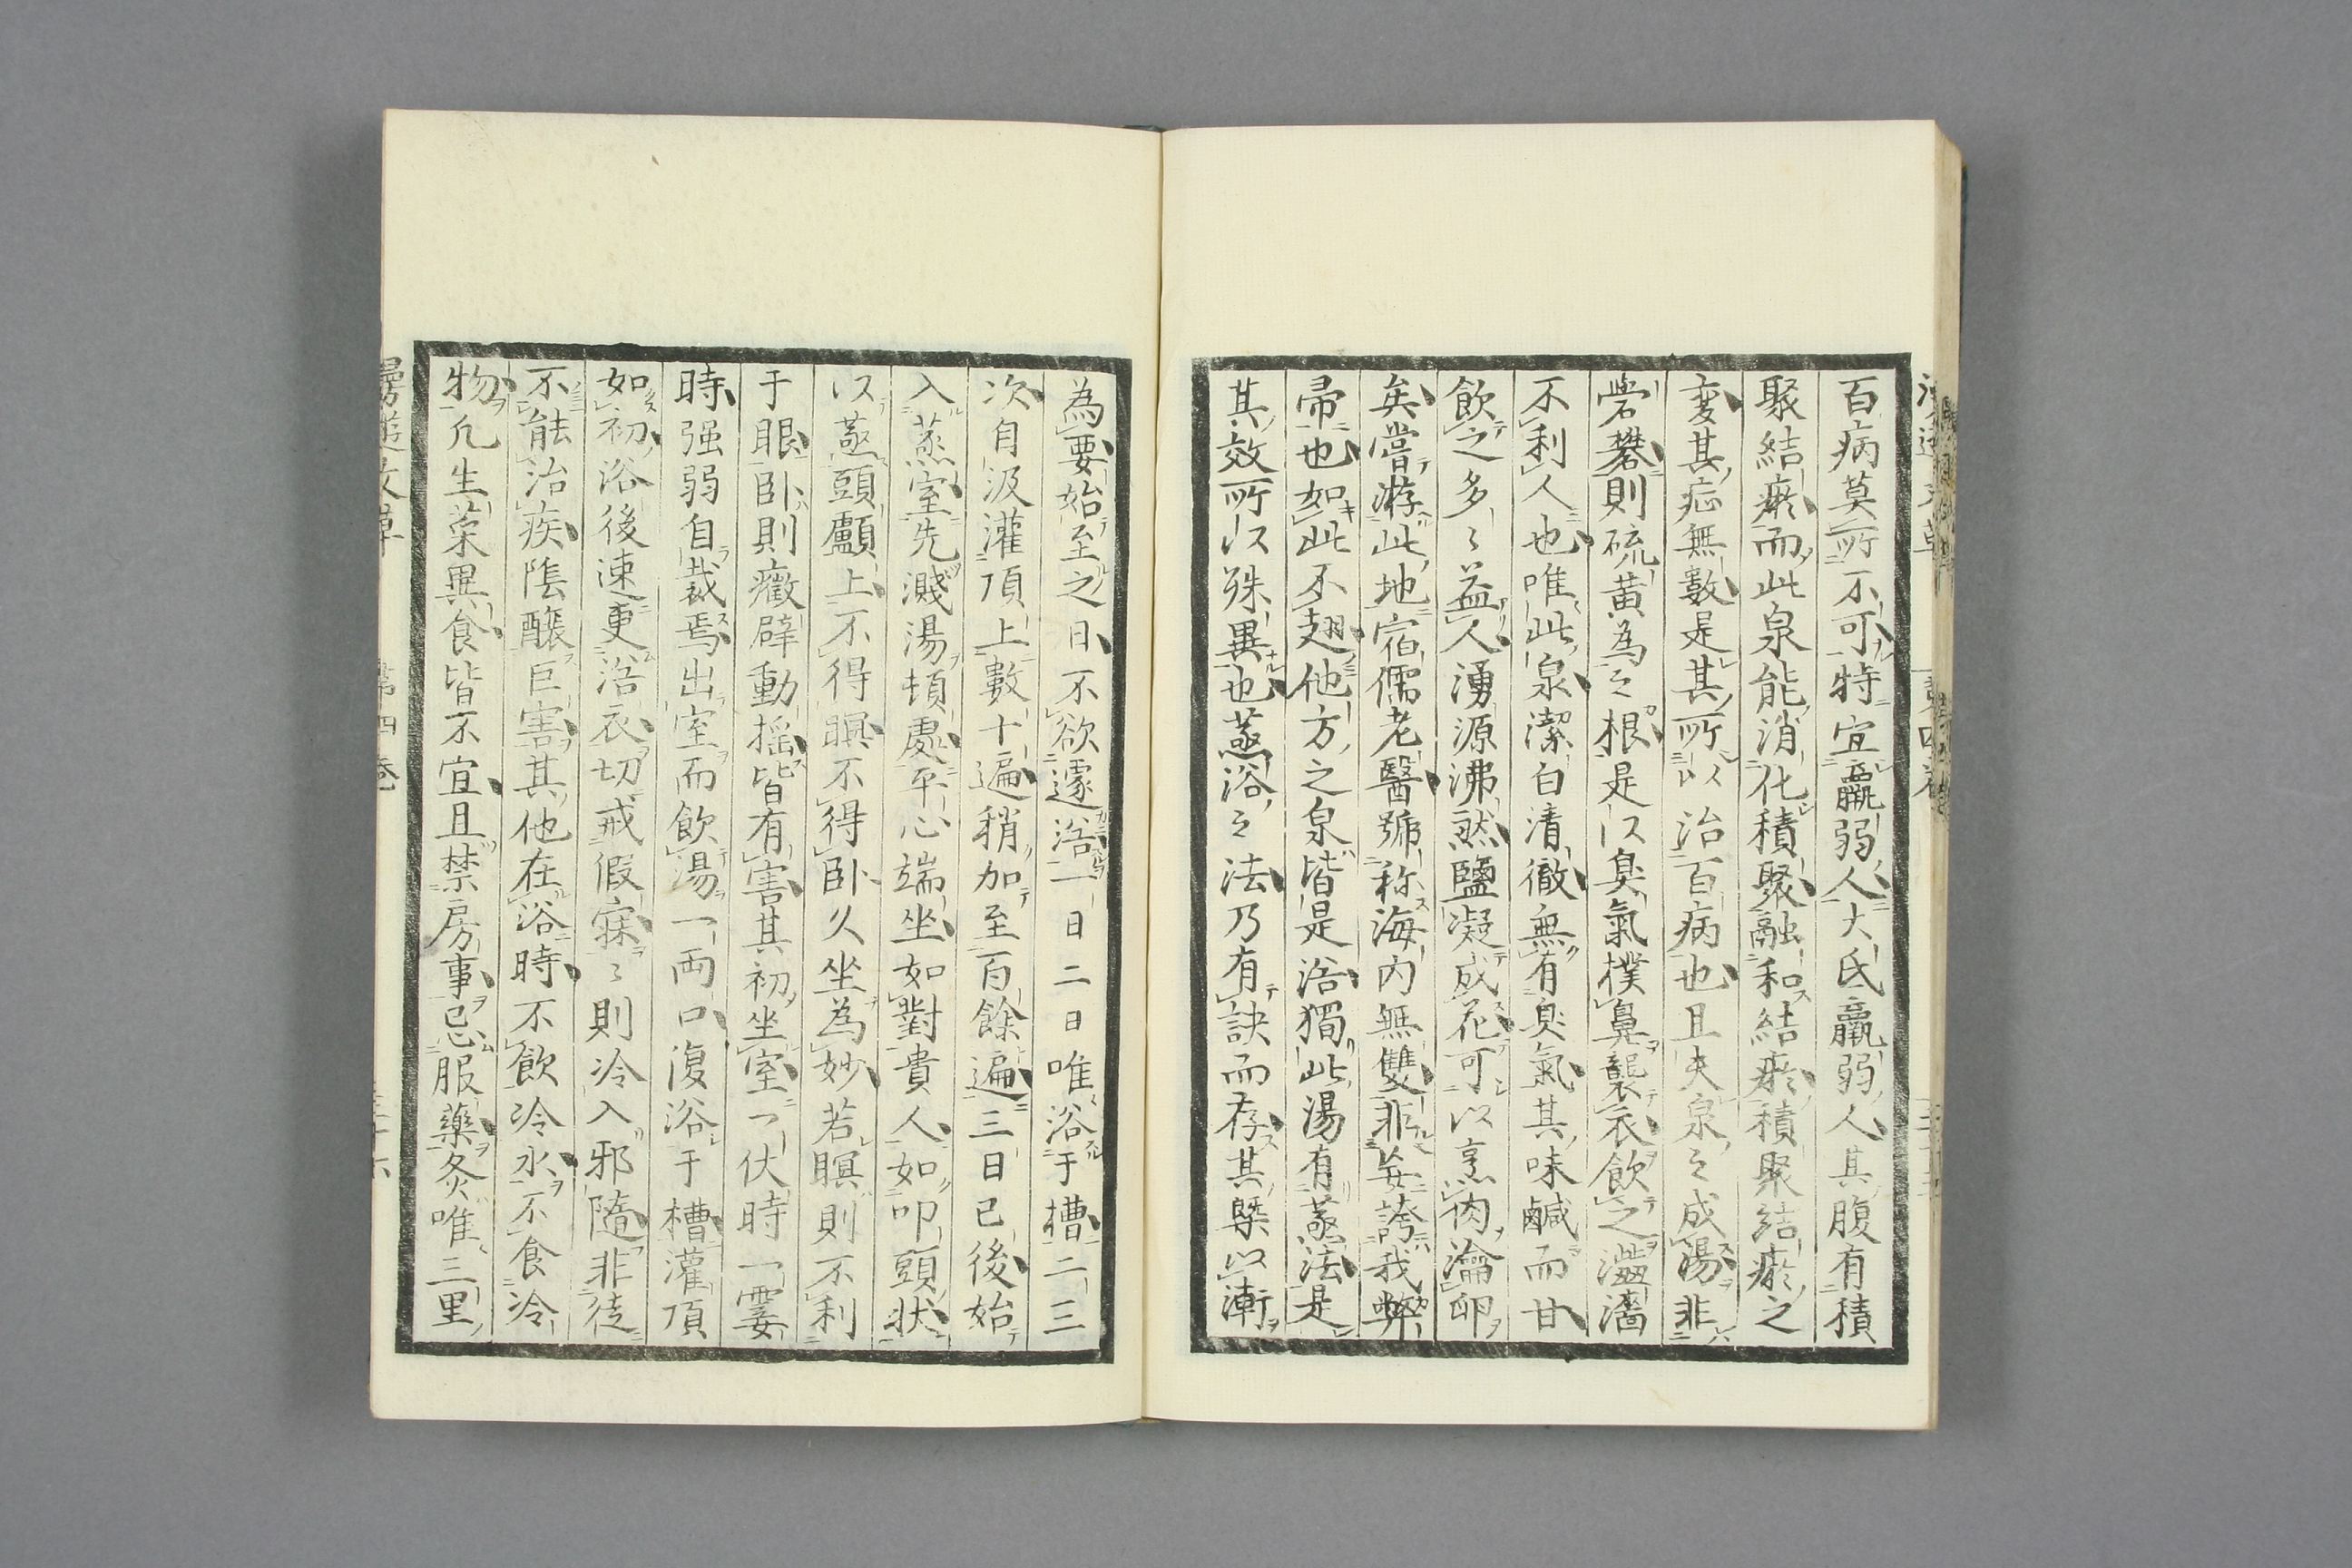 百病莫所不可特宜羸弱人大氐羸弱人其腹有積
聚結瘀而此泉能消化積聚融和結瘀積聚結瘀之
変其症無數是其所以治百病也且夫泉之成湯非
礜礬則硫黄為之根是以臭氣撲鼻襲衣飲之澁濇
不利人也唯此泉潔白清徹無有臭氣其味鹹而甘
飲之多〻益人湧源沸然鹽凝成花可以烹肉瀹卵
矣嘗游此地宿儒老醫號称海内無雙非妄誇我弊
帚也如此不翅他方之泉皆是浴獨此湯有蒸法是
其效所以殊異也蒸浴之法乃有訣而存其槩以漸
為要始至之日不欲遽浴一日二日唯浴于槽二三
次自汲灌頂上數十遍稍加至百餘遍三日已後始
入蒸室先濺湯頓處平心端坐如對貴人如叩頭状
以蒸頭顱上不得瞑不得卧久坐為妙若瞑則不利
于眼卧則癥癖動搖皆有害其初坐室一伏時一霎
時强弱自裁焉出室而飲湯一両口復浴于槽灌頂
如初浴後速更浴衣切戒假寐〻則冷入邪隨非徒
不能治疾隂釀巨害其他在浴時不飲冷水不食冷
物凢生菜異食皆不宜且禁房事忌服藥灸唯三里
漫遊文草 第四巻